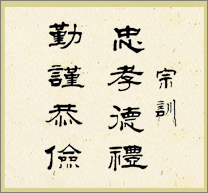 宗訓
忠孝德禮
勤謹恭儉